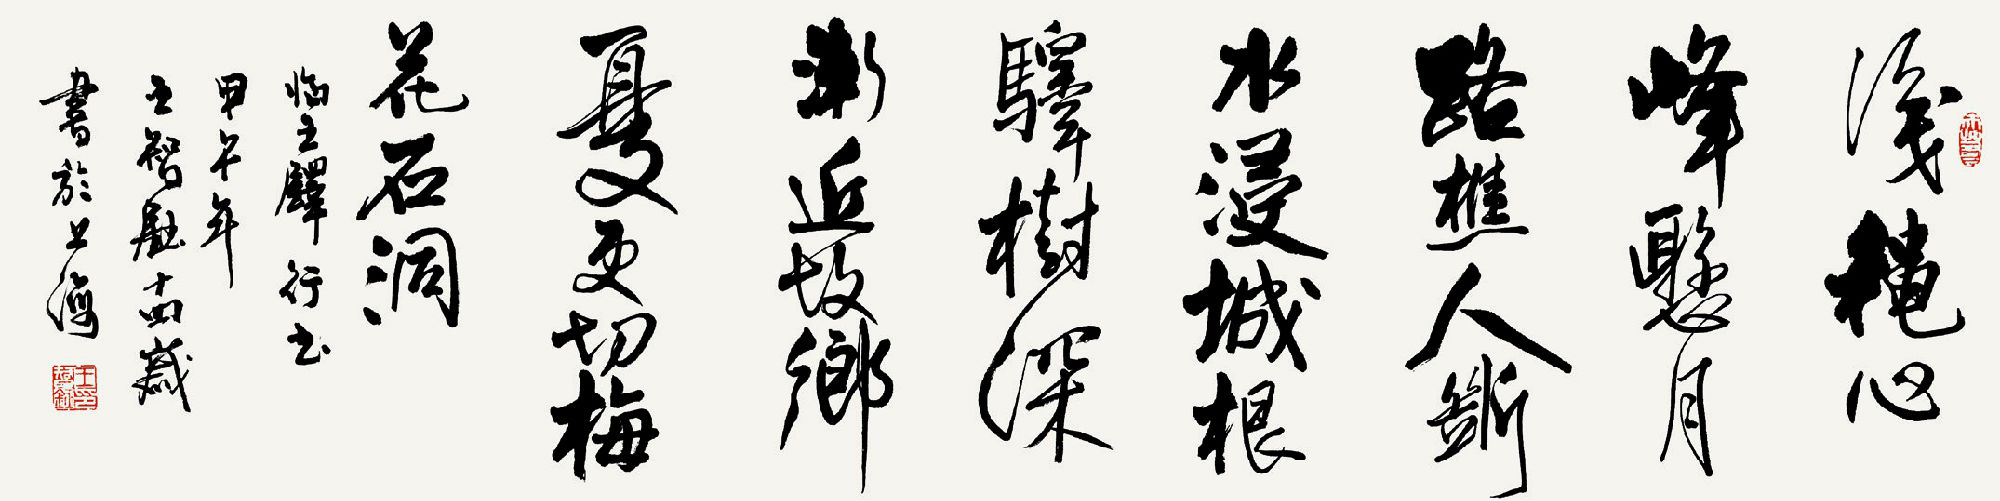 淺穐心
峰懸月
路樵人斷
水浸城根
驛樹深
漸近故鄉
憂更切梅
花石洞
臨王鐸行書
甲午年
王智 十四歲
書於上海